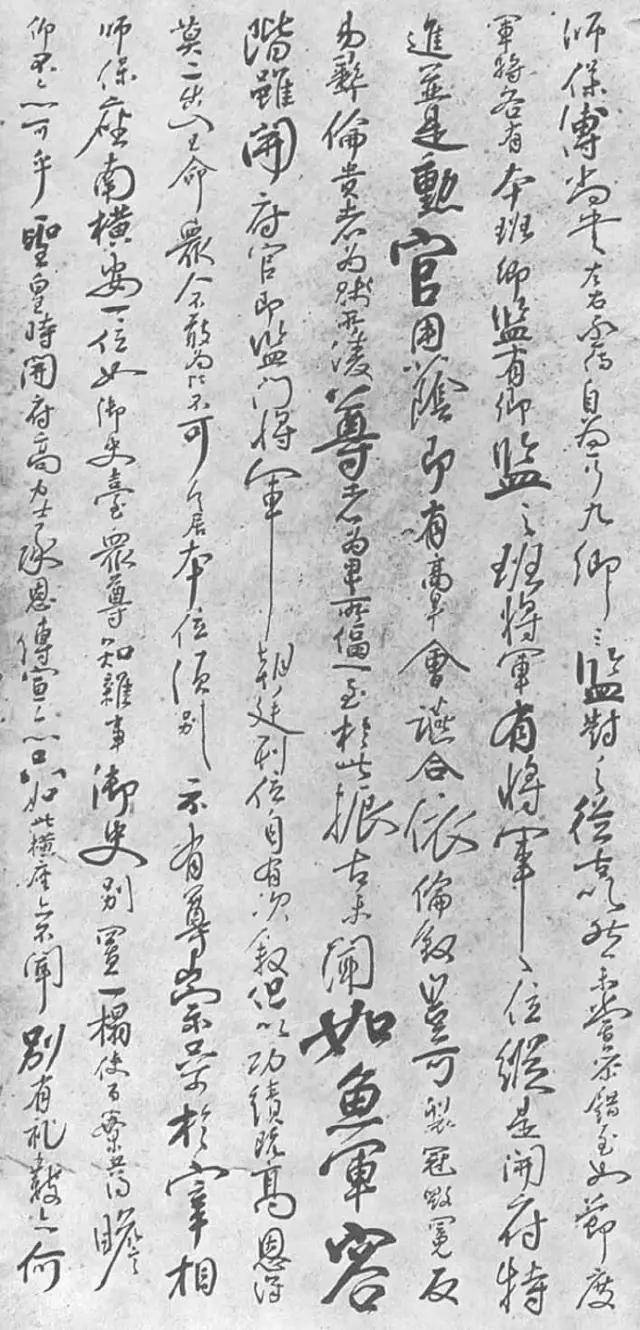 師保傅尚書左右丞侍自為一行九卿三監對之從古以然未嘗參錯至如節度
軍將各有本班卿監有卿監之班將軍有將軍之位縱是開府特
進並是勳官用蔭即有高卑會讌合依倫敘豈可裂冠毀冕反
易彝倫貴者為賤所淩尊者為卑所偪一至於此振古未聞如魚軍容
階雖開府官即監門將軍朝廷列位自有次敘但以功績既高恩澤
莫二出入王命眾人不敢為比不可令居本位須別示有尊崇只可於宰相
師保座南橫安一位如御史臺眾尊知雜事御史別置一榻使百寮共得瞻
仰不亦可乎聖皇時開府高力士承恩傳宣亦只如此橫座亦不聞別有礼數亦何